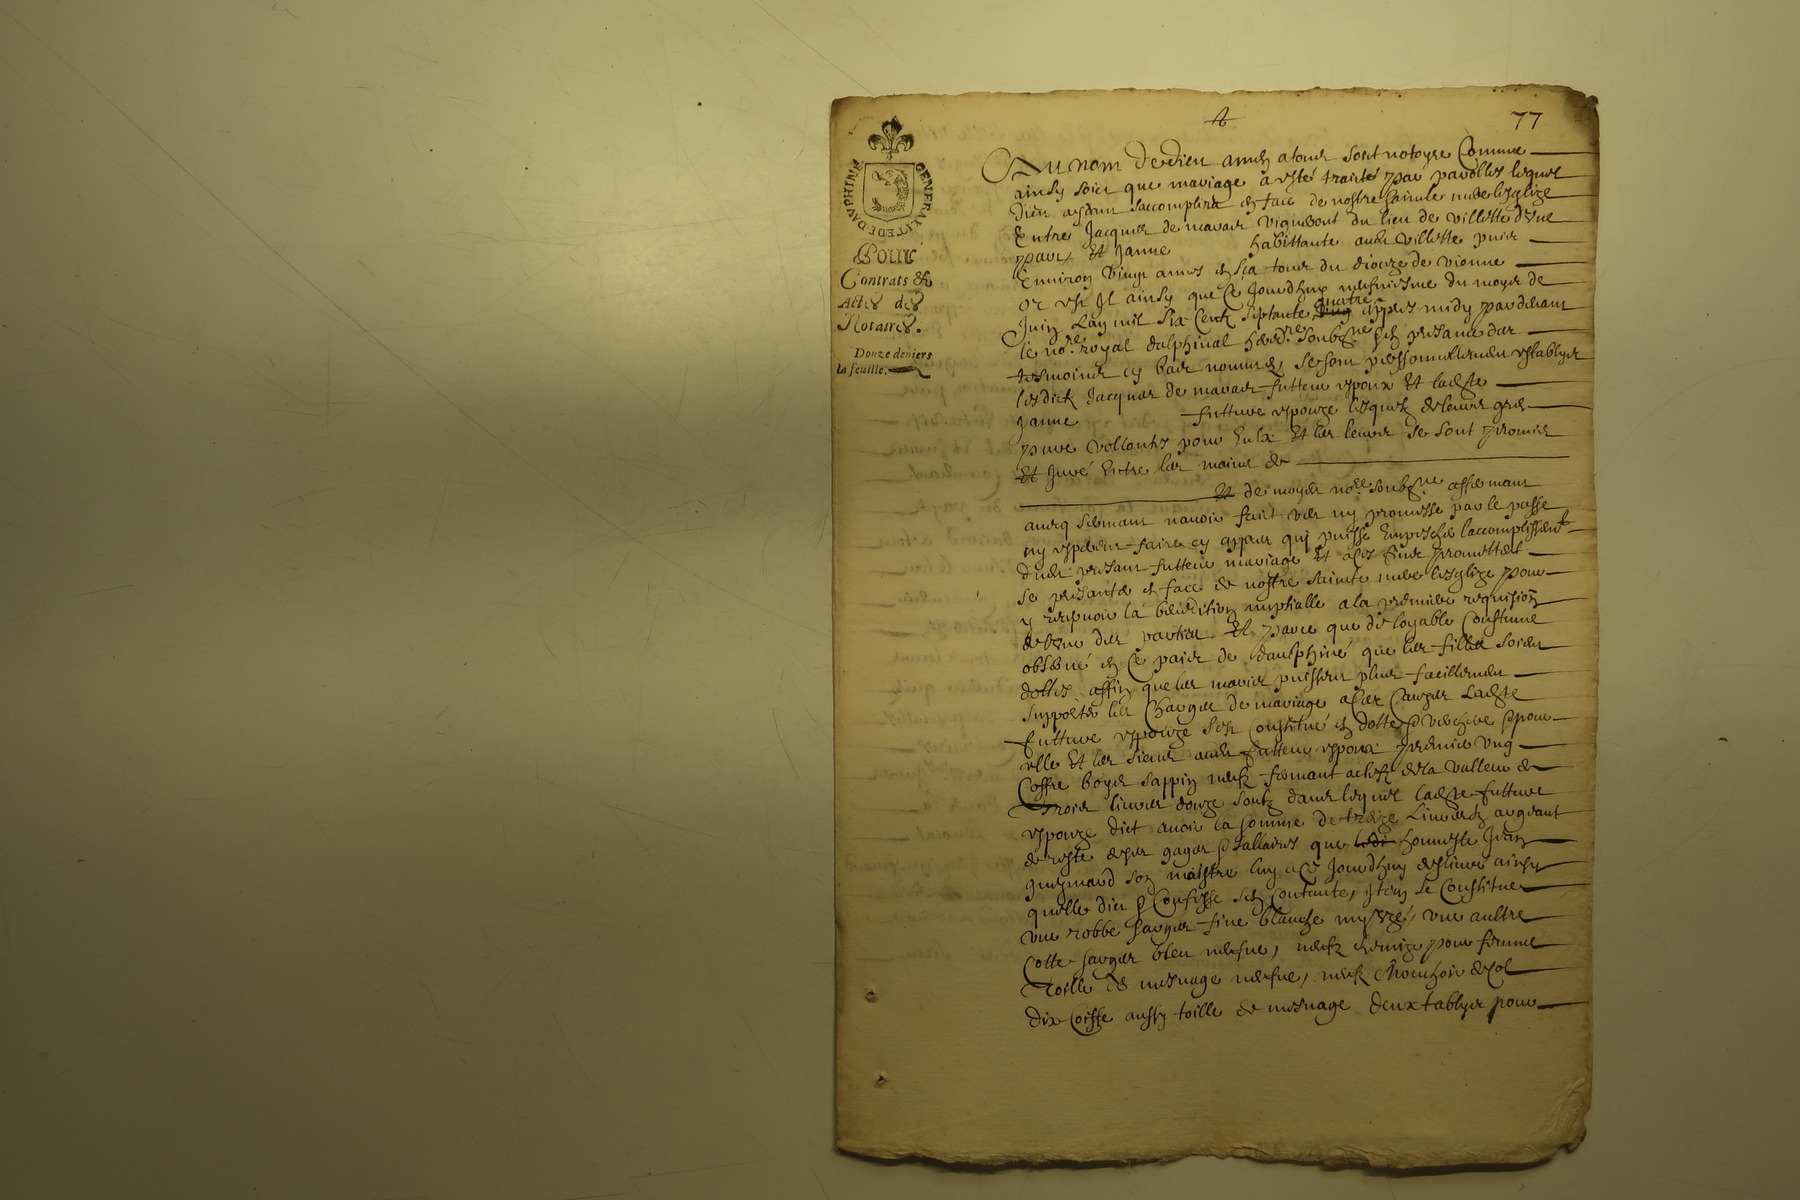 77
GENERALITE DE DAUPHINE
Pour
Contrats &
Actes des
Notaires.
Douze deniers
la feuille.
Au nom de dieu amen a tous soit notoyre Comme
ainsy soict que mariage a esté traité par parolles lequel
dieu aydant saccomplira en face de nostre sainte mere lesglize
Entre Jacques de mavais du lieu de villette
Et Janne habittante audit villette puis
Environ vingt annes en sça tous du dioceze de vienne
or est Jl ainsy que Ce Jourdhuy neufviesme du moys de
Juin Lan mil six Cents septante quatre appres midy pardevant
le nore royal dalphinal soubzne Et presance des
tesmoins cy bas nommes, se sont personnellement establys
lesdicts Jacques de mavais futteur espoux Et ladite
Janne futture espouze lesquels de leurs gres
pure vollontes pour Eulx Et les leurs se sont promis
Et Juré Entre les mains de
Et de moydit nore soubzne
avecq serment navoir fait veu ny promesse par le passé
ny esperer faire cy appres qui puisse Empescher laccomplissemt
dudit presant futteur mariage Et a ces fins promettent
se presanter en face de nostre sainte mere lesglize pour
y recepvoir la benediction nuptialle a la premiere requisition
de lune des parties Et parce que de loyable Coustume
observé en Ce pais de dauphiné que les filles soient
dottes affin que les maris puissent plus facillement
supporter les Charges de mariage a Ces Causes Ladite
futture espouze sest Constitué en dotte & verchere pour
elle Et les siens audit futteur espoux premier Ung
Coffre boys sappin neuf fermant a clefz de la valleur de
trois livres douze soulz dans lequel ladite futture
espouze dict avoir la somme de treize Livres argeant
de reste de ses gages & sallaires que honneste Jean
son maistre luy a Ce Jourdhuy deslivré ainsy
quelle dict & Confesse sen Contante, Jtem se Constitue
une robbe sarges fine blanche myzeé, une aultre
Cotte sarges bleu neufve, neuf chemize pour femme
toille de mesnage neufve, neuf mouchoir de col
dix Coiffe aussy toille de mesnage deux tablyer pour